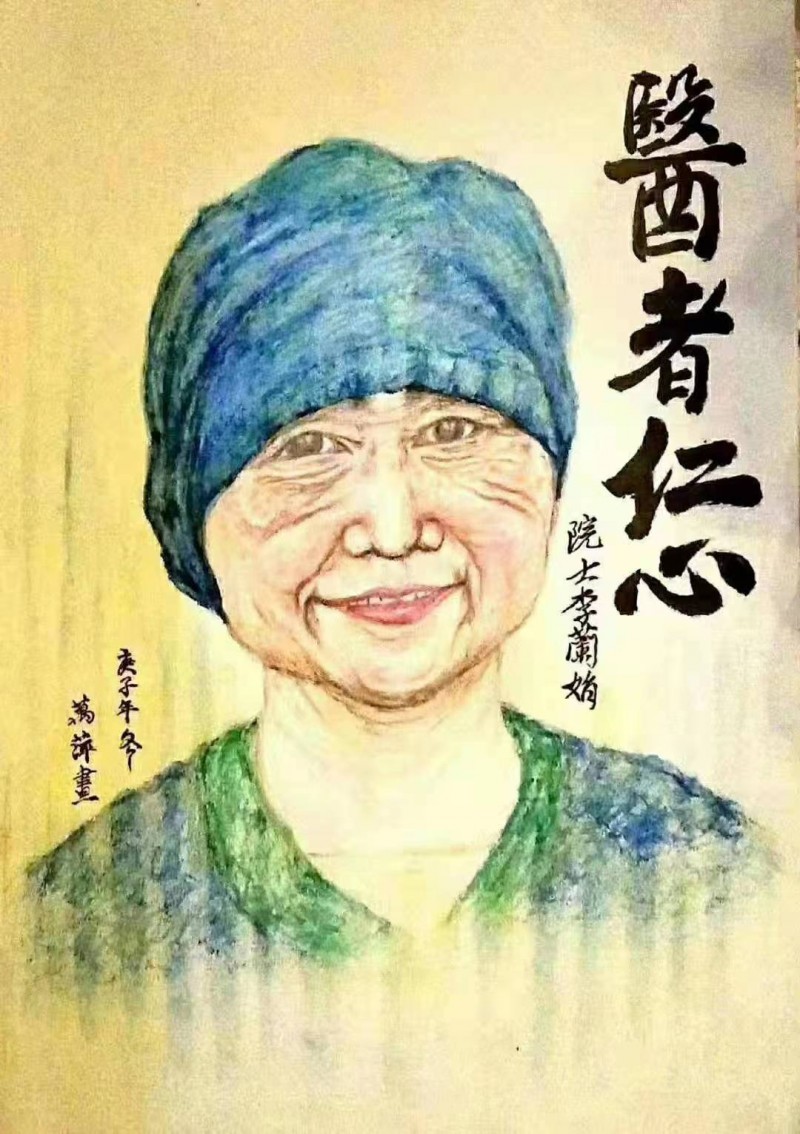 醫者仁心
院士李蘭娟
庚子年冬
萬萍畫